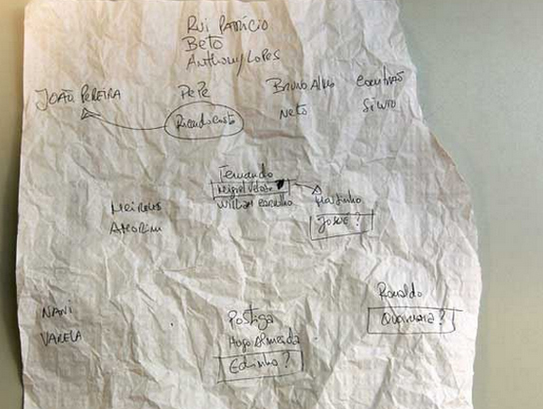 Rui Patrício
Beto
Anthony Lopes
João Pereira
Pepe
Bruno Alves
Coentrão
Ricardo Costa
Neto
Silvio
Fernando
Miguel Veloso
William Carvalho
Meireles
Amorim
Martinho
Josué?
Nani
Varela
Postiga
Hugo Almeida
Edinho?
Ronaldo
Quaresma?